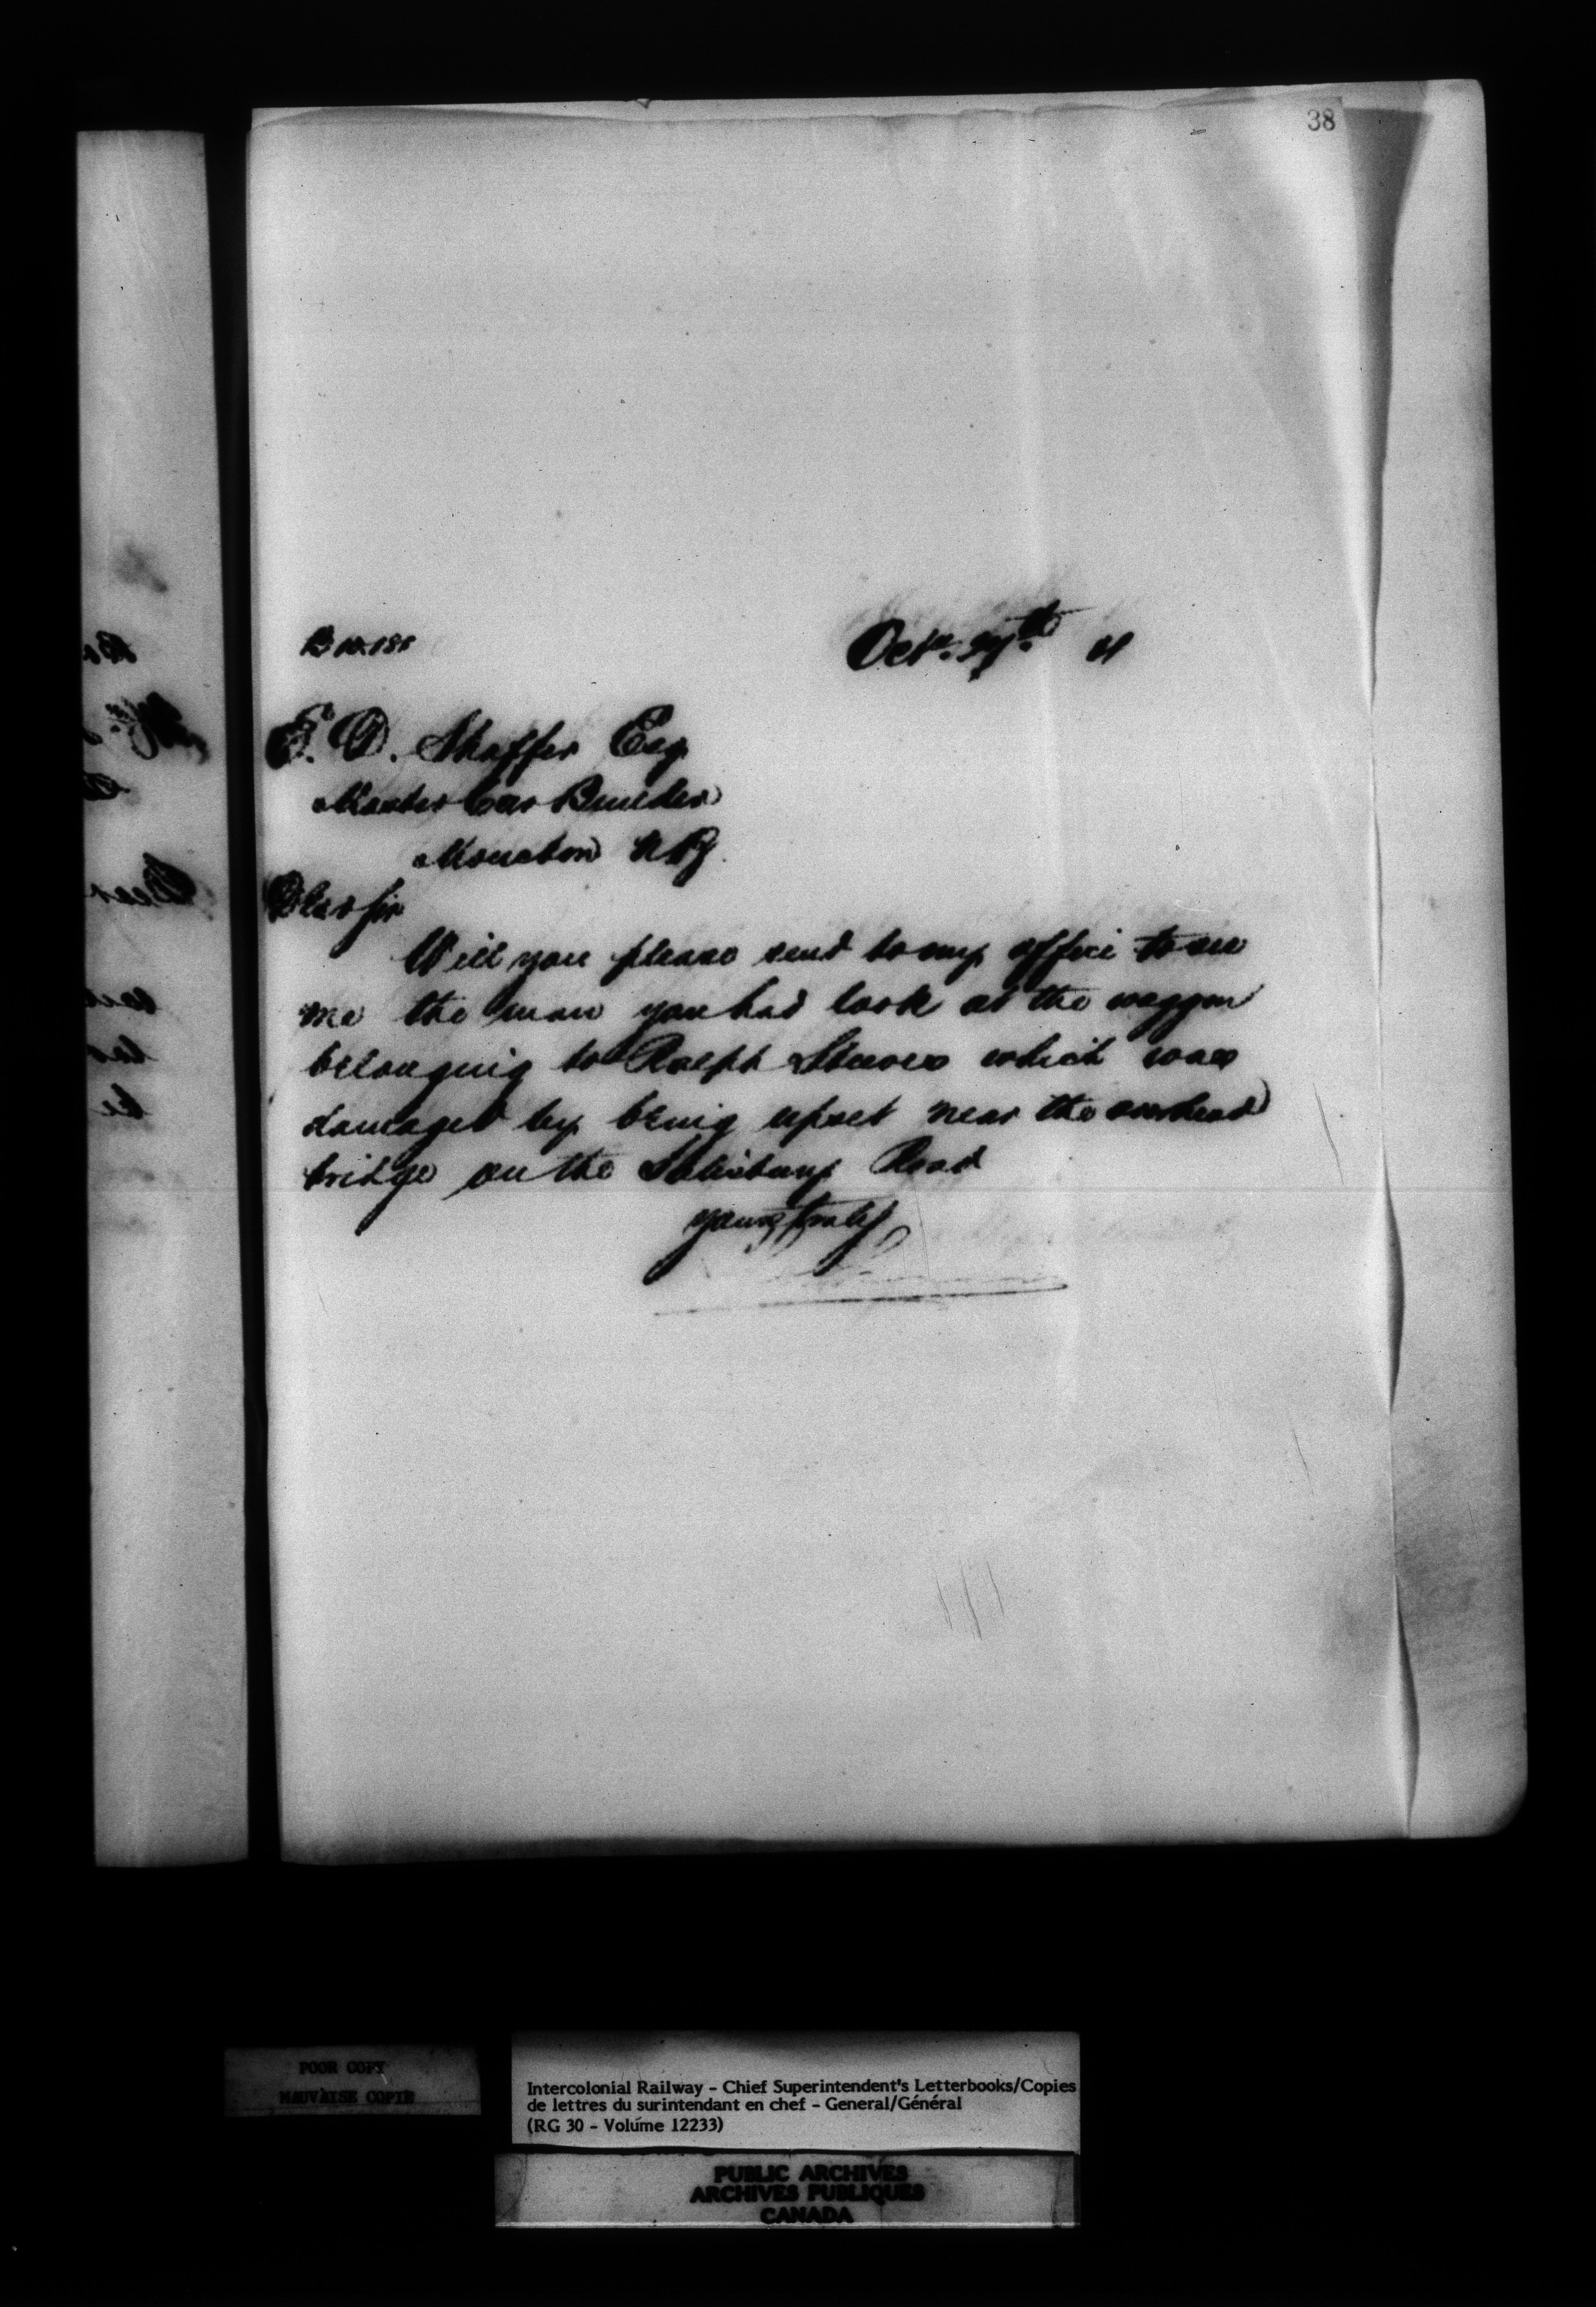 38
Octr. 29th 91
E. D. Shaffer Esq
Master Car Builder
Moncton NB
Dear Sir
Will you please send to my office to see
me the man you had look at the waggon
belonging to Ralph Steeves which was
damaged by being upset near the overhead
bridge on the Salisbury Road
yours truly
POOR COPY
MAUVAISE COPIE
Intercolonial Railway - Chief Superintendent's Letterbooks/Copies
de lettres du surintendant en chef - General/Général
(RG 30 - Volume 12233)
PUBLIC ARCHIVES
ARCHIVES PUBLIQUES
CANADA